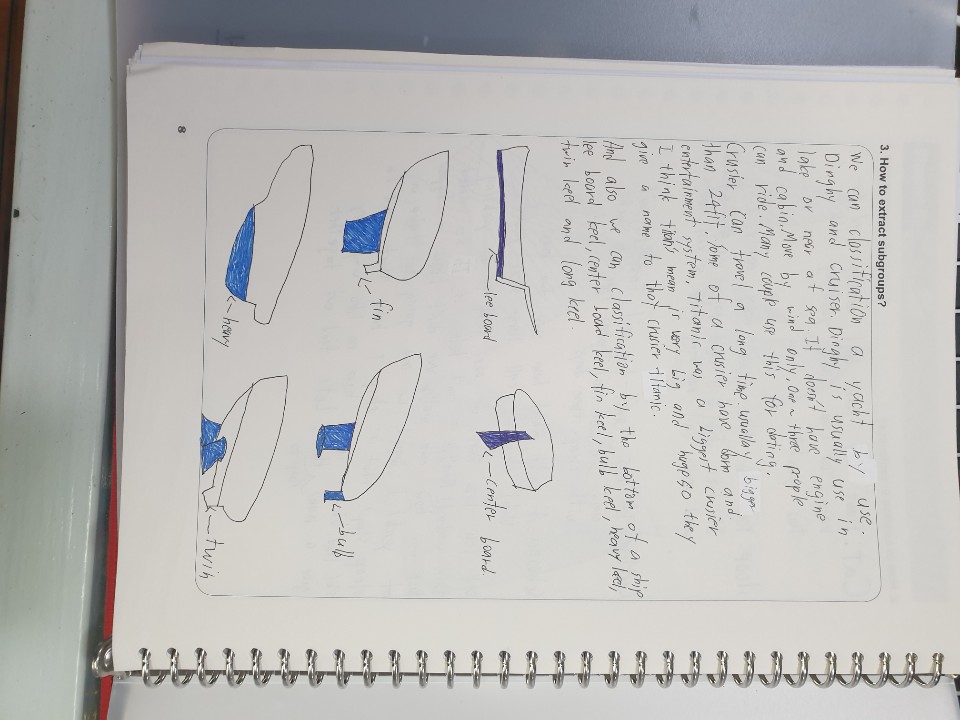 3. How to extract subgroups?
We can classification a yacht by use.
Dinghy and cruiser. Dinghy is usually use in
lake or near a sea. It doesn't have engine
and cabin. Move by wind only. One ~ three people
can ride. Many couple use this for dating.
Crusier can travel a long time. usually bigger
than 24fit. Some of a crusier have and
entertainment system. Titanic was a biggest crusier
I think titan's mean is very big and huge so they
give a name to that crusier titanic.
And also we can classification by the bottom of a ship
lee board keel, center board keel, fin keel, bulb keel, heavy keel,
twin keel and long keel.
lee board
center board.
fin
bulb
heavy
twin
8